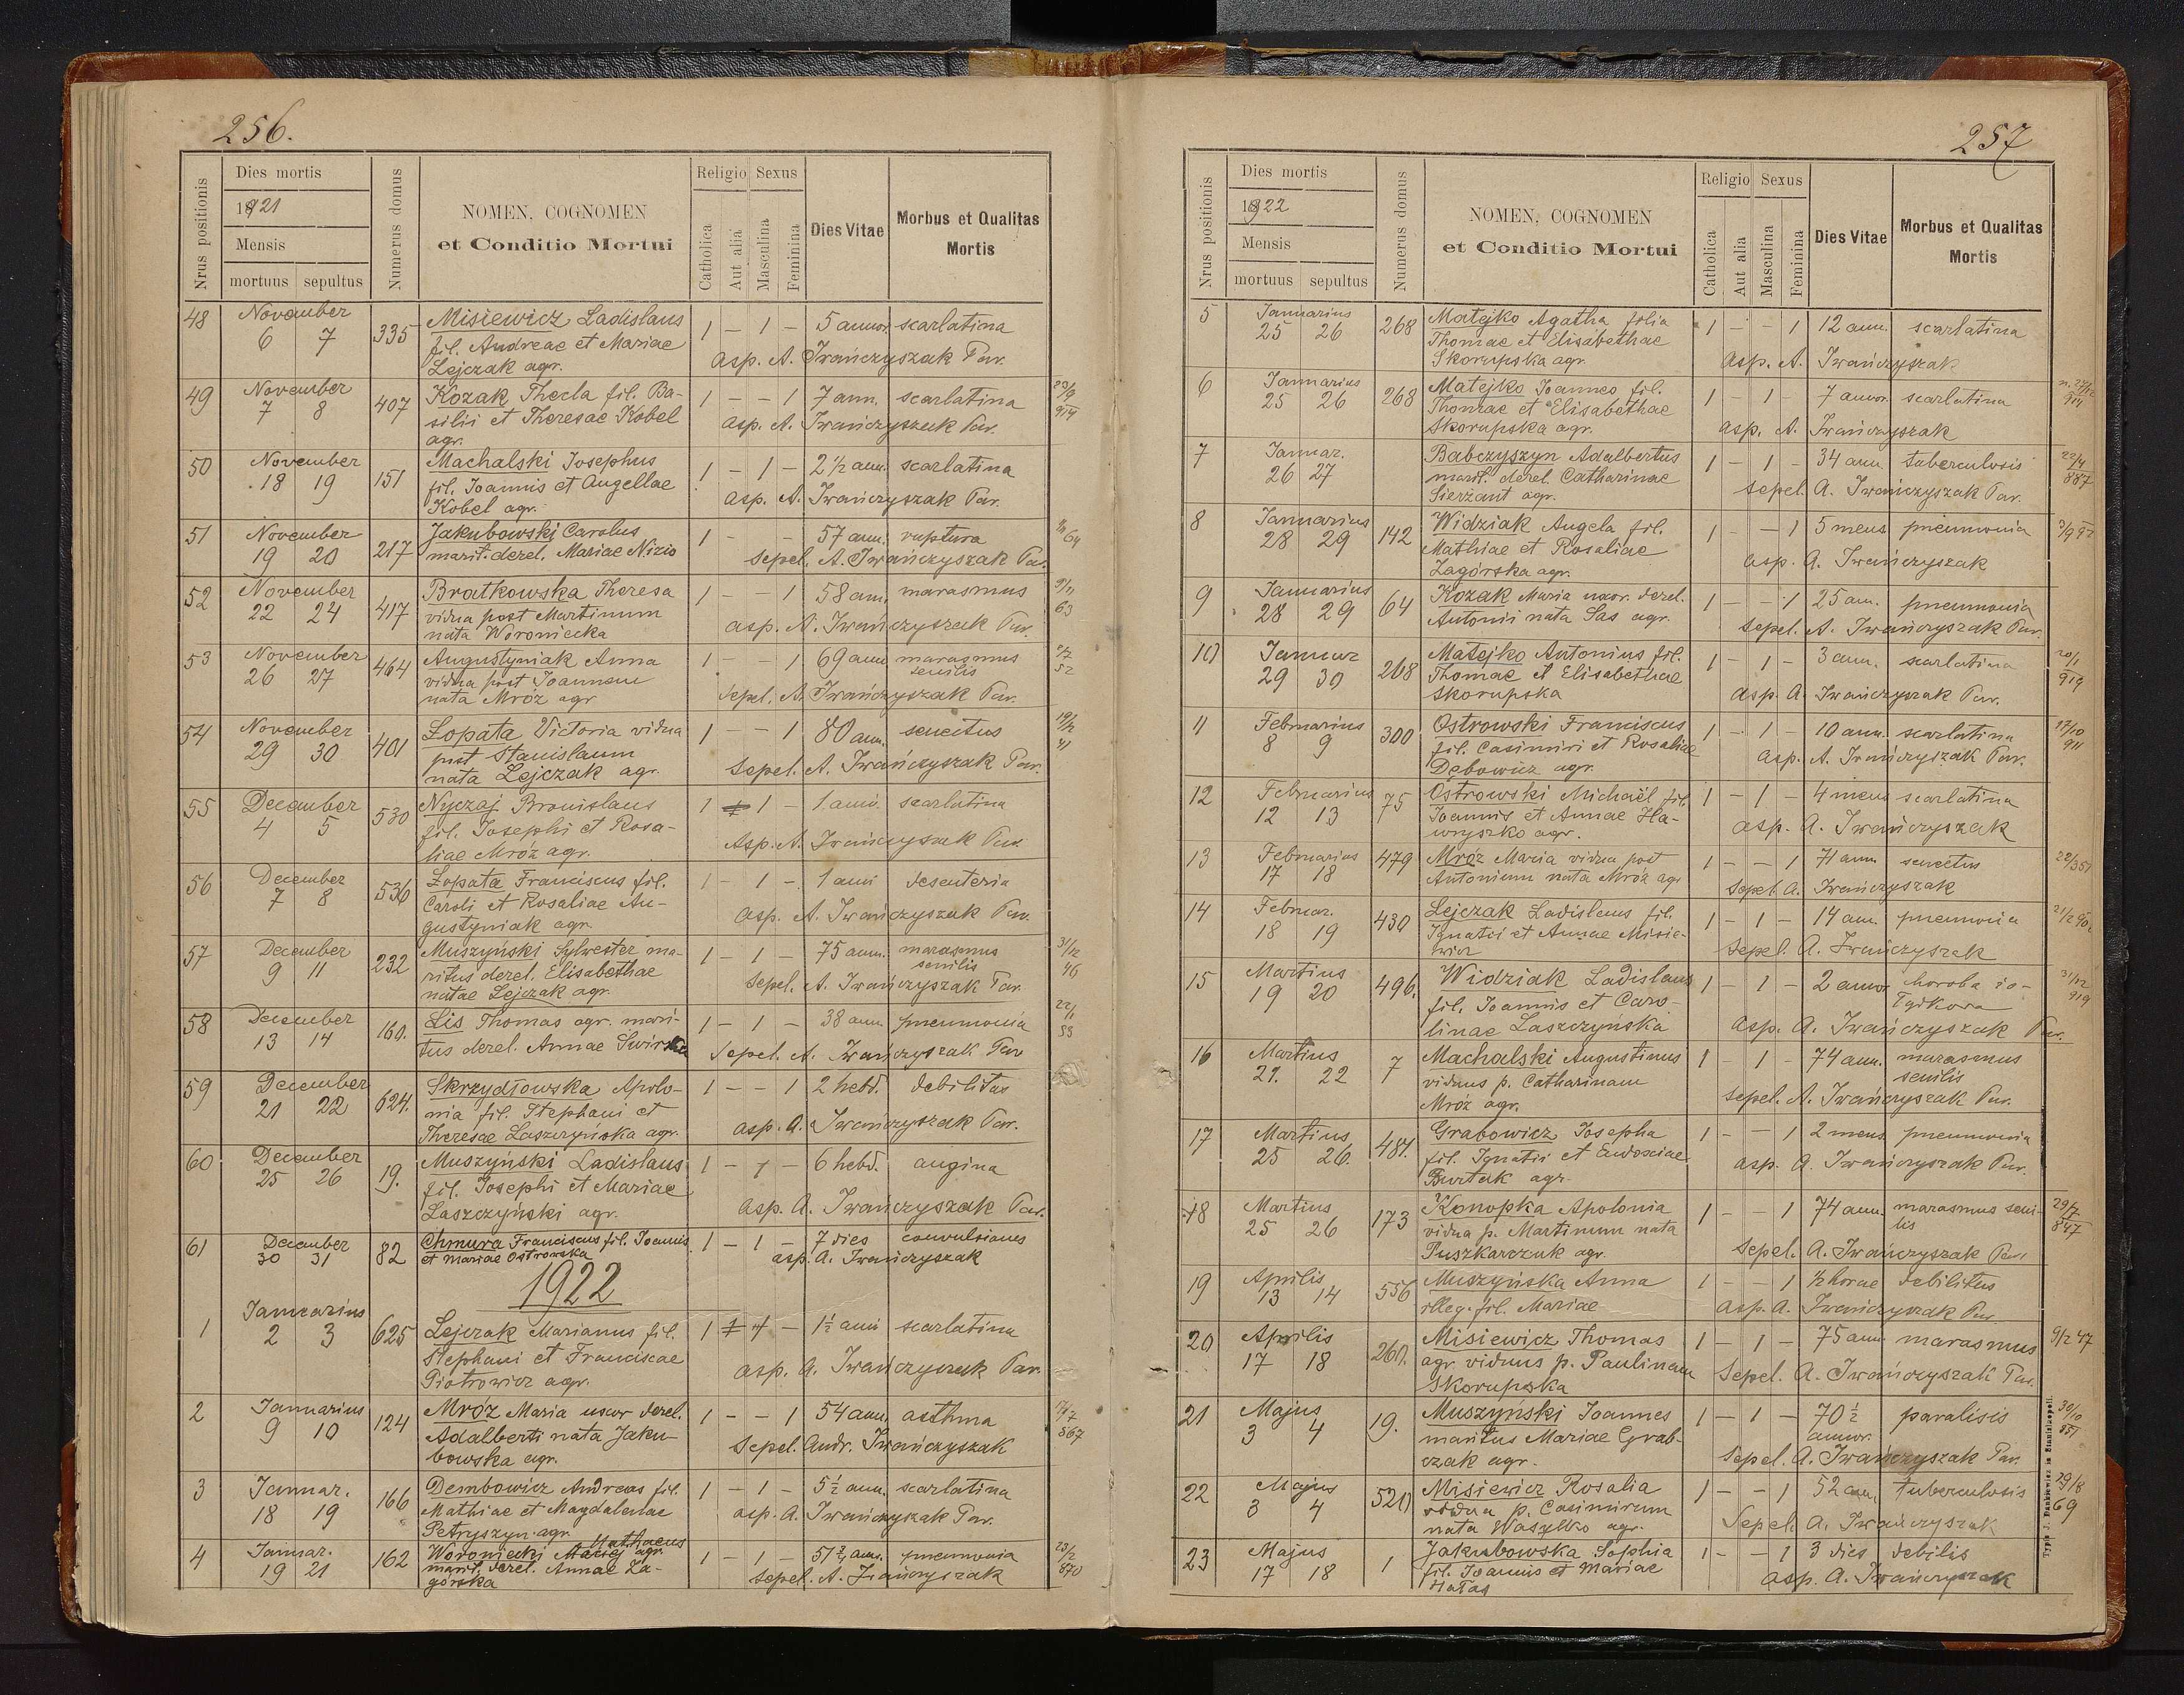 256.
Nrus positionis
Dies mortis
1921
Mensis
mortuus sepultus
Numerus domus
NOMEN, COGNOMEN
et Conditio Mortui
Religio
Catholica
Aut alia
Sexus
Masculina
Feminina
Dies Vitae
Morbus et Qualitas
Mortis
48 November 6 7 335 Misiewicz Ladislaus 1 – 1 – 5 annor. scarlatina
fil. Andreae et Mariae asp. A. Iwańczyszak Par.
Lejczak agr.
49 November 7 8 407 Kozak Thecla fil. Ba- 1 – – 1 7 ann. scarlatina
silii et Theresae Kobel asp. A. Iwańczyszak Par.
agr.
50 November 18 19 151 Machalski Josephus 1 – 1 – 2 1/2 ann. scarlatina
fil. Joannis et Angellae asp. A. Iwańczyszak Par.
Kobel agr.
51 November 19 20 217 Jakubowski Carolus 1 – – 57 ann. ruptura
marit. derel. Mariae Nizio sepel. A. Iwańczyszak Par.
52 November 22 24 417 Bratkowska Theresa 1 – – 1 58 ann. marasmus 9/11 63
vidua post Martinum asp. A. Iwańczyszak Par.
nata Woroniecka
53 November 26 27 464 Augustyniak Anna 1 – – 1 69 ann. marasmus senilis
vidua post Joannem sepel. A. Iwańczyszak Par.
nata Mróz agr
54 November 29 30 401 Łopata Victoria vidua 1 – – 1 80 ann. senectus
post Stanislaum sepel. A. Iwańczyszak Par.
nata Lejczak agr.
55 December 4 5 530 Nyczaj Bronislaus 1 1 – 1 anni. scarlatina
fil. Josephi et Rosa- Asp. A. Iwańczyszak Par.
liae Mróz agr.
56 December 7 8 536 Łopata Franciscus fil. 1 – 1 – 1 anni desenteria
Caroli et Rosaliae Au- asp. A. Iwańczyszak Par.
gustyniak agr
57 December 9 11 232 Muszyński Sylwester ma- 1 – 1 – 75 ann. marasmus senilis 31/12 46
ritus derel. Elisabethae sepel. A. Iwańczyszak Par.
natae Lejczak agr.
58 December 13 14 160. Lis Thomas agr. mari- 1 – 1 – 38 ann pneumonia
tus derel. Annae Swirska sepel. A. Iwańczyszak Par
59 December 21 22 624. Skrzydłowska Apolo- 1 – – 1 2 hebd. debilitas
nia fil. Stephani et asp. A. Iwańczyszak Par.
Theresae Laszczyńska agr.
60 December 25 26 19. Muszyński Ladislaus 1 – 1 – 6 hebd. angina
fil. Josephi et Mariae asp. A. Iwańczyszak Par.
Laszczyński agr.
61 December 30 31 82 Chmura Franciscus fil. Joannis 1 – 1 – 7 dies convulsiones
et Mariae Ostrowska asp. A. Iwańczyszak
1922
1 Januarius 2 3 625 Lejczak Marianus fil. 1 1 – 1 1/2 anni scarlatina
Stephani et Franciscae asp. A. Iwańczyszak Par.
Piotrowicz agr.
2 Januarius 9 10 124 Mróz Maria uxor derel. 1 – – 1 54 ann. asthma
Adalberti nata Jaku- Sepel. Andr. Iwańczyszak
bowska agr.
3 Januar. 18 19 166 Dembowicz Andreas fil. 1 – 1 – 5 1/2 ann. scarlatina
Mathiae et Magdalenae asp. A. Iwańczyszak Par.
Petryszyn agr.
4 Januar. 19 21 162 Woroniecki Maciej agr. Mathaeus 1 – 1 – 51 ann. pneumonia 23/2 870
marit. derel. Annae Za- sepel. A. Iwańczyszak
górska
257
Nrus positionis
Dies mortis
1922
Mensis
mortuus sepultus
Numerus domus
NOMEN, COGNOMEN
et Conditio Mortui
Religio
Catholica
Aut alia
Sexus
Masculina
Feminina
Dies Vitae
Morbus et Qualitas
Mortis
5 Januarius 25 26 268 Matejko Agatha filia 1 – – 1 12 ann. scarlatina
Thomae et Elisabethae Asp. A. Iwańczyszak
Skorupska agr.
6 Januarius 25 26 268 Matejko Joannes fil. 1 – 1 – 7 annor. scarlatina
Thomae et Elisabethae asp. A. Iwańczyszak
Skorupska agr.
7 Januar. 26 27 Babczyszyn Adalbertus 1 – 1 – 34 ann. tuberculosis 22/4 887
marit. derel. Catharinae sepel. A. Iwańczyszak Par.
Sierżant agr.
8 Januarius 28 29 142 Widziak Angela fil. 1 – 1 5 mens. pneumonia
Mathiae et Rosaliae asp. A. Iwańczyszak
Zagórska agr.
9 Januarius 28 29 64 Kozak Maria uxor. derel. 1 – – 1 25 ann. pneumonia
Antonii nata Sas agr. sepel. A. Iwańczyszak Par.
10 Januar 29 30 268 Matejko Antonius fil. 1 – 1 – 3 ann. scarlatina 20/1 919
Thomae et Elisabethae asp. A. Iwańczyszak Par.
Skorupska
11 Februarius 8 9 300 Ostrowski Franciscus 1 – 1 – 10 ann. scarlatina 17/10 911
fil. Casimiri et Rosaliae asp. A. Iwańczyszak Par.
Debowicz agr.
12 Februarius 12 13 75 Ostrowski Michaël fil. 1 – 1 – 4 mens scarlatina
Joannis et Annae Ha- asp. A. Iwańczyszak
wryszko agr.
13 Februarius 17 18 479 Mróz Maria vidua post 1 – – 1 71 ann. senectus
Antonium nata Mróz agr sepel. A. Iwańczyszak
14 Februar. 18 19 430 Lejczak Ladislaus fil. 1 – 1 – 14 ann. pneumonia
Ignatii et Annae Misie- sepel. A. Iwańczyszak
wicz
15 Martius 19 20 496. Widziak Ladislaus 1 – 1 – 2 annor. horoba żo- 31/12 919
fil. Joannis et Caro- łądkowa
linae Laszczyńska asp. A. Iwańczyszak Par.
16 Martius 21. 22 7 Machalski Augustinus 1 – 1 – 74 ann. marasmus
viduus p. Catharinam senilis
Mróz agr. sepel. A. Iwańczyszak Par.
17 Martius 25 26. 481. Grabowicz Josepha 1 – – 1 2 mens. pneumonia
fil. Ignatii et Eudosciae asp. A. Iwańczyszak Par.
Burtak agr.
18 Martius 25 26 173 Konopka Apolonia 1 – – 1 74 ann. marasmus seni- 29/7 847
vidua p. Martinum nata lis
Puszkarczuk agr. sepel. A. Iwańczyszak Par
19 Aprilis 13 14 556 Muszyńska Anna 1 – – 1 1/2 horae debilitas
illeg. fil. Mariae asp. A. Iwańczyszak Par.
20 Aprilis 17 18 260. Misiewicz Thomas 1 – 1 – 75 ann. marasmus 9/2 47
agr. viduus p. Paulinam sepel. A. Iwańczyszak Par.
Skorupska
21 Majus 3 4 19. Muszyński Joannes 1 – 1 – 70 1/2 paralisis 30/10 851
maritus Mariae Grab- annor.
czak agr. sepel. A. Iwańczyszak Par.
22 Majus 3 4 520 Misiewicz Rosalia 1 – – 1 52 ann. tuberculosis 29/8 69
vidua p. Casimirum Sepel. A. Iwańczyszak
nata Wasylko agr.
23 Majus 17 18 1 Jakubowska Sophia 1 – – 1 3 dies debilis
fil. Joannis et Mariae asp. A. Iwańczyszak
Hałas
Typis J. Dankiewicz in Stanislaopoli.